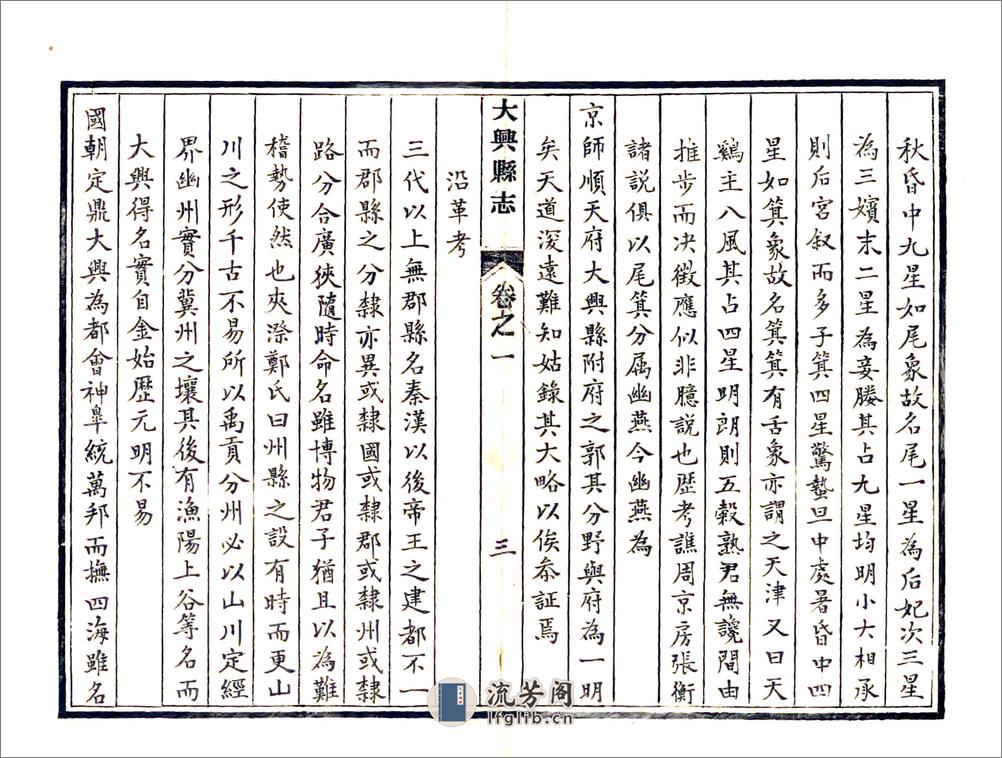 秋昏中九星如尾象故名尾一星為后妃次三星
為三嬪末二星為妾媵其占九星均明小大相承
則后宮叙而多子箕四星驚蟄旦中處暑昏中四
星如箕象故名箕箕有舌象亦謂之天津又曰天
鷄主八風其占四星明朗則五穀熟君無讒間由
推步而决徵應似非臆說也歷考譙周京房張衡
諸說俱以尾箕分属幽燕今幽燕為
京師順天府大興縣附府之郭其分野與府為一明
矣天道深遠難知姑錄其大略以俟叅証焉
大興縣志
卷之一
三
沿革考
三代以上無郡縣名秦漢以後帝王之建都不一
而郡縣之分隸亦異或隸國或隸郡或隸州或隸
路分合廣狹隨時命名雖博物君子猶且以為難
稽勢使然也夾漈鄭氏曰州縣之設有時而更山
川之形千古不易所以禹貢分州必以山川定經
界幽州實分冀州之壤其後有漁陽上谷等名而
大興得名實自金始歷元明不易
國朝定鼎大興為都會神臯統萬邦而撫四海雖名
流芳阁
lfglib.cn